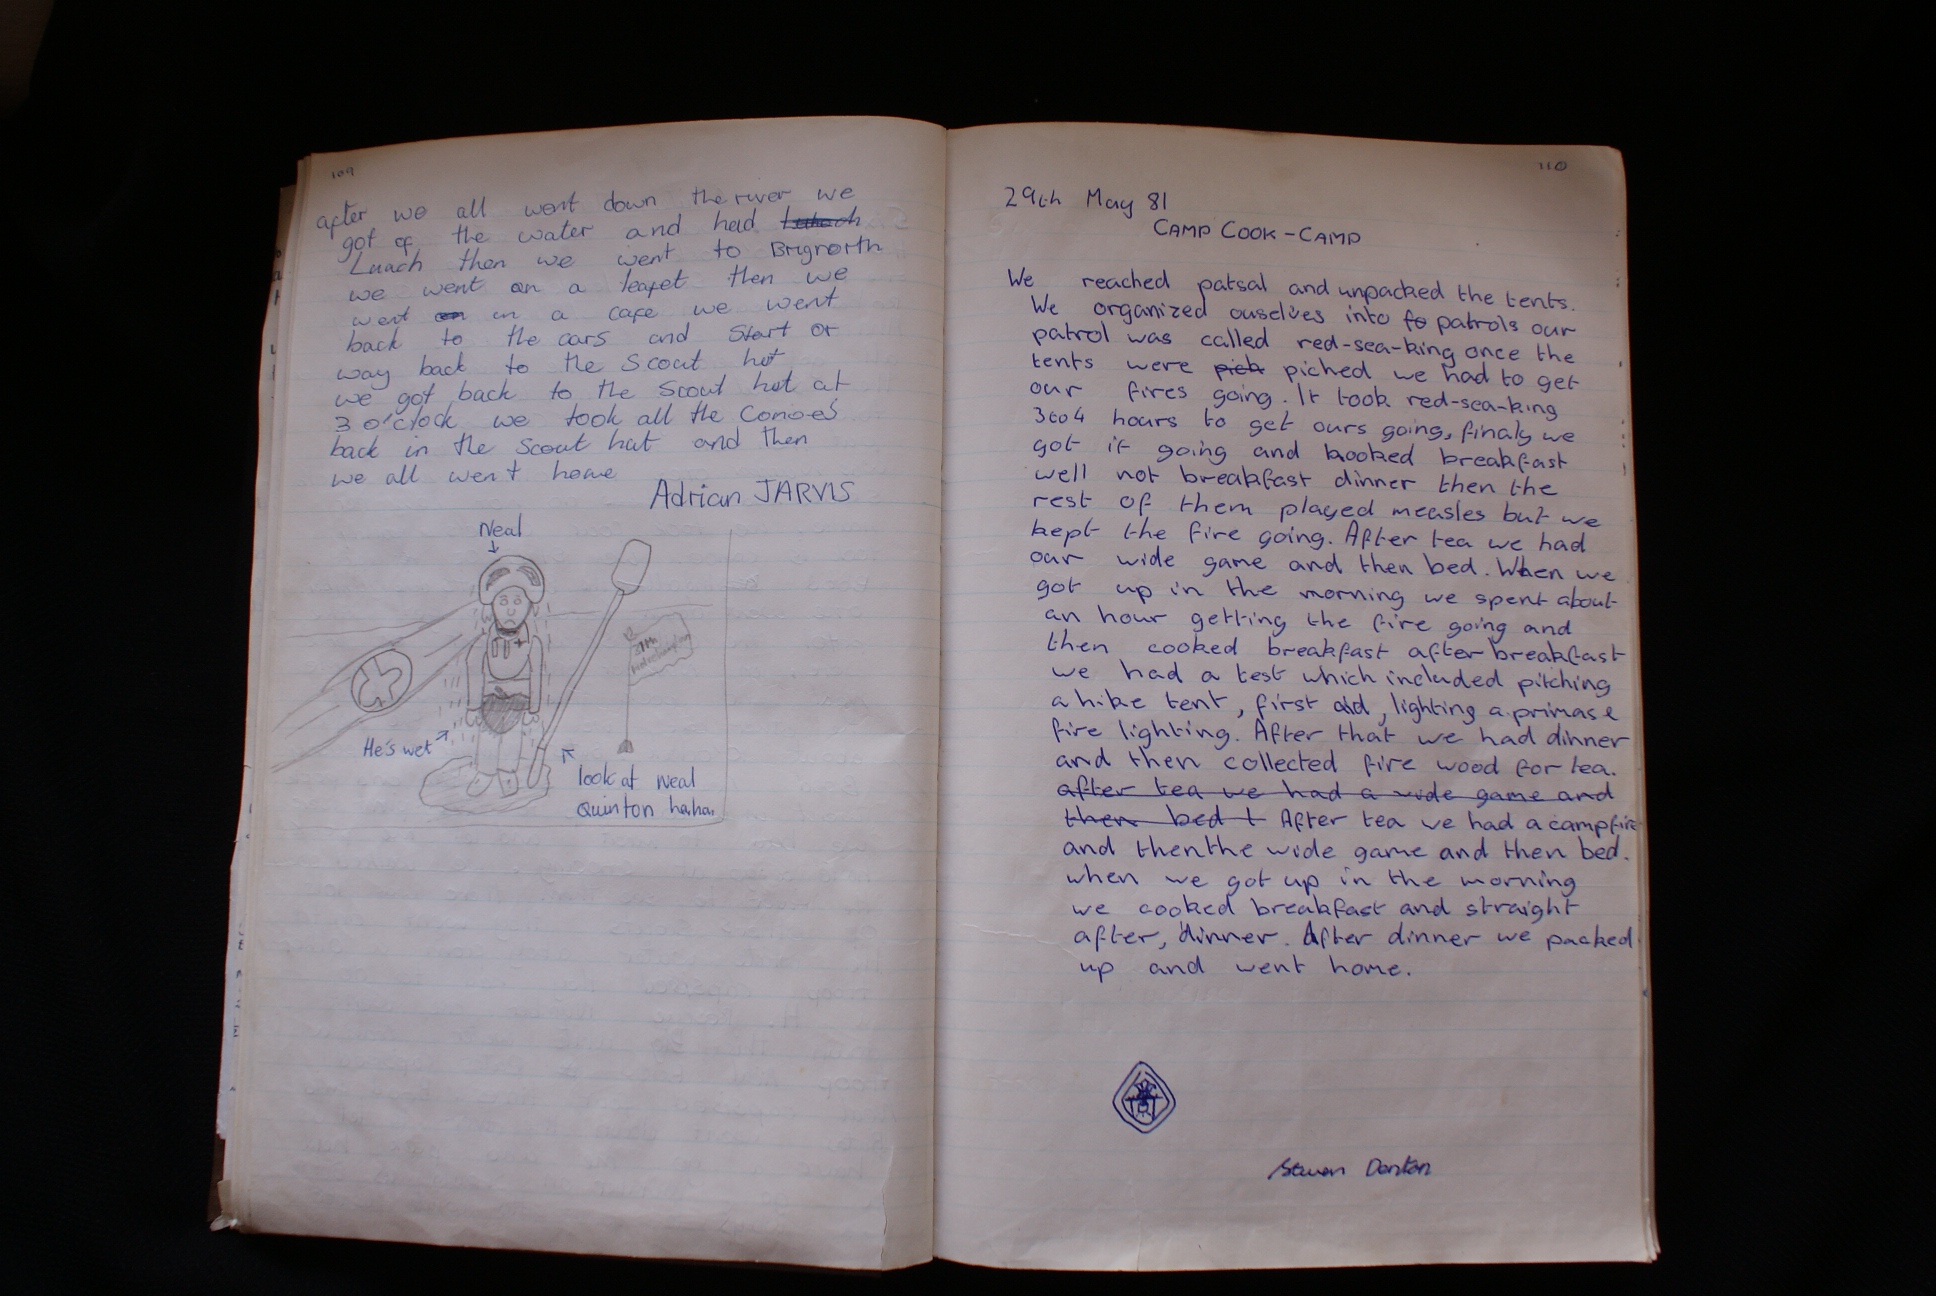 109
after we all went down the river we
got of the water and had
Luach then we went to Brignorth
we went on a leafet then we
went in a cafe we went
back to the cars and Start or
way back to the Scout hut
we got back to the Scout hut at
3 o'clock we took all the Conoes
back in the Scout hut and then
we all went home
Adrian JARVIS
Neal
He's wet
look at Neal
Quinton haha.
27th
110
29th May 81
CAMP COOK-CAMP
We reached patsal and unpacked the tents.
We organized ouselves into fo patrols our
patrol was called red-sea-king once the
tents were pich piched we had to get
our fires going. It took red-sea-king
3to4 hours to get ours going, finaly we
got it going and kooked breakfast
well not breakfast dinner then the
rest of them played measles but we
kept the fire going. After tea we had
our wide game and then bed. When we
got up in the morning we spent about
an hour getting the fire going and
then cooked breakfast after breakfast
we had a test which included pitching
a hike tent, first aid, lighting a primase
fire lighting. After that we had dinner
and then collected fire wood for tea.
after tea we had a wide game and
then bed t After tea we had a campfire
and then the wide game and then bed.
when we got up in the morning
we cooked breakfast and straight
after, dinner. After dinner we packed
up and went home.
Steven Denton